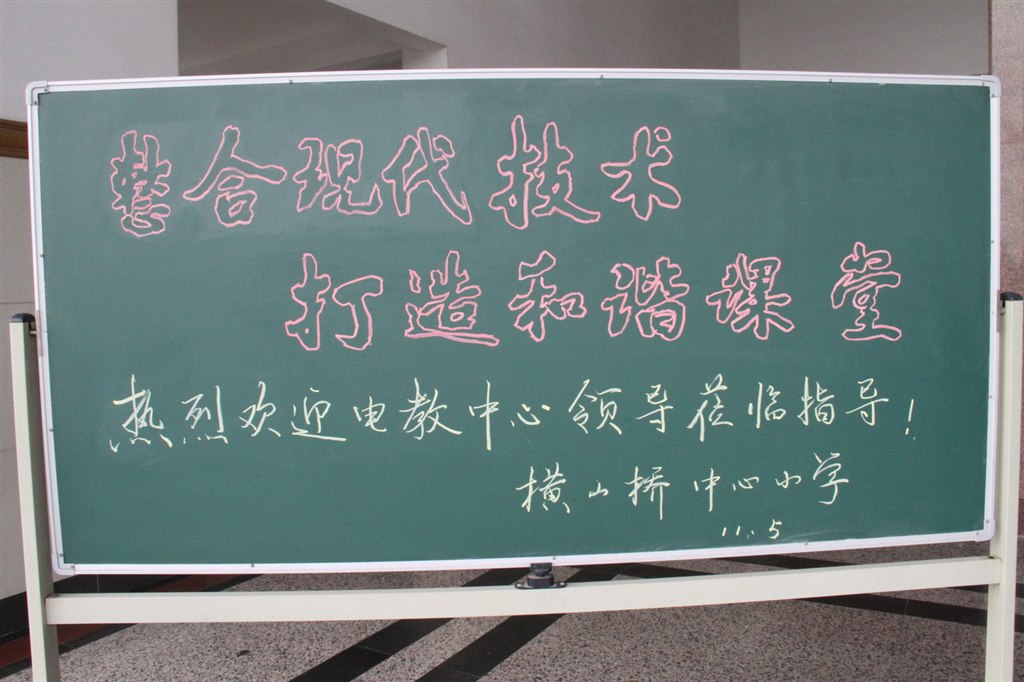 整合现代技术
打造和谐课堂
热烈欢迎电教中心领导莅临指导!
横山桥中心小学
11.5